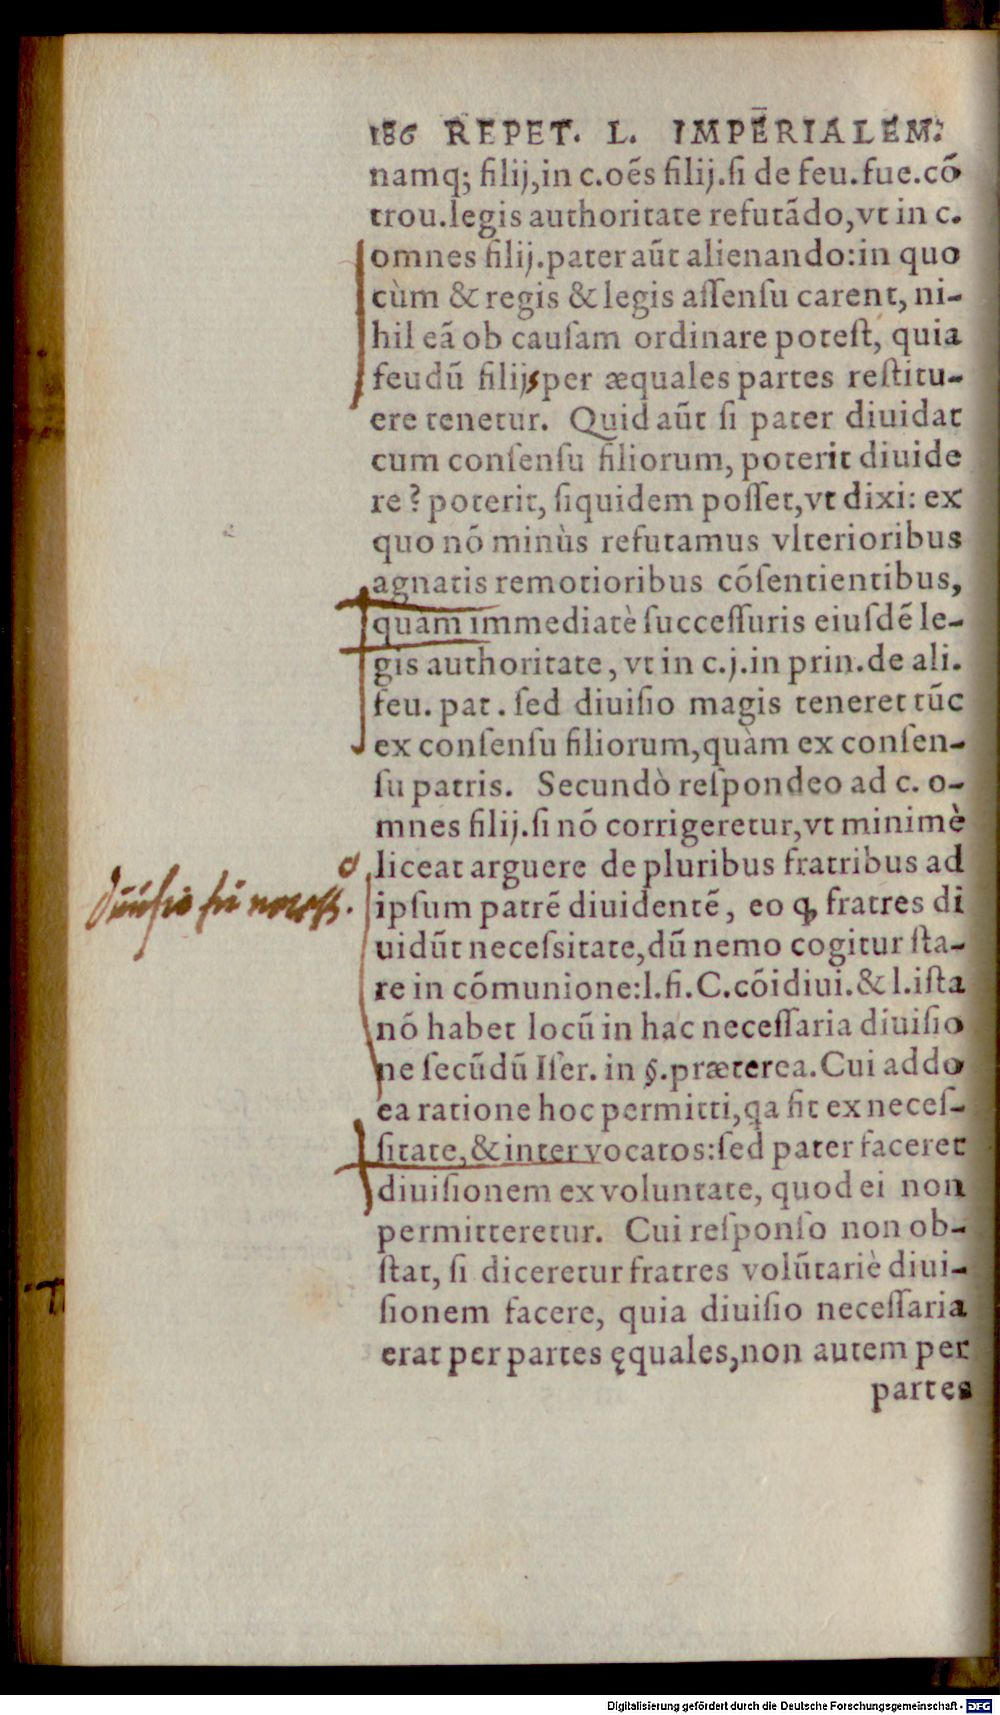 186 REPET. L. IMPERIALEM.
namq; filij,in c.oẽs filij.ſi de feu.fue.cõ
trou.legis authoritate refutãdo,vt in c.
omnes filij.pater aũt alienando:in quo
cùm & regis & legis aſſenſu carent, ni-
hil eã ob cauſam ordinare poteſt, quia
feudũ filijs per æquales partes reſtitu-
ere tenetur. Quid aũt ſi pater diuidat
cum conſenſu filiorum, poterit diuide
re ? poterit, ſiquidem poſſet,vt dixi: ex
quo nõ minùs refutamus vlterioribus
agnatis remotioribus cõſentientibus,
quàm immediatè ſucceſſuris eiuſdẽ le-
gis authoritate, vt in c.j.in prin.de ali.
feu. pat. ſed diuiſio magis teneret tũc
ex conſenſu filiorum,quàm ex conſen-
ſu patris. Secundò reſpondeo ad c. o-
mnes filij.ſi nõ corrigeretur,vt minimè
liceat arguere de pluribus fratribus ad
diuiſio
ipſum patrẽ diuidentẽ, eo ꝙ fratres di
uidũt neceſsitate,dũ nemo cogitur ſta-
re in cõmunione:l.fi.C.cõidiui.& l.iſta
nõ habet locũ in hac neceſſaria diuiſio
ne ſecũdũ Iſer. in §.præterea.Cui addo
ea ratione hoc permitti,qa fit ex neceſ-
ſitate,& inter vocatos:ſed pater faceret
diuiſionem ex voluntate, quod ei non
permitteretur. Cui reſponſo non ob-
ſtat, ſi diceretur fratres volũtariè diui-
ſionem facere, quia diuiſio neceſſaria
erat per partes ęquales,non autem per
partes
Digitalisierung gefördert durch die Deutsche Forschungsgemeinschaft - DFG